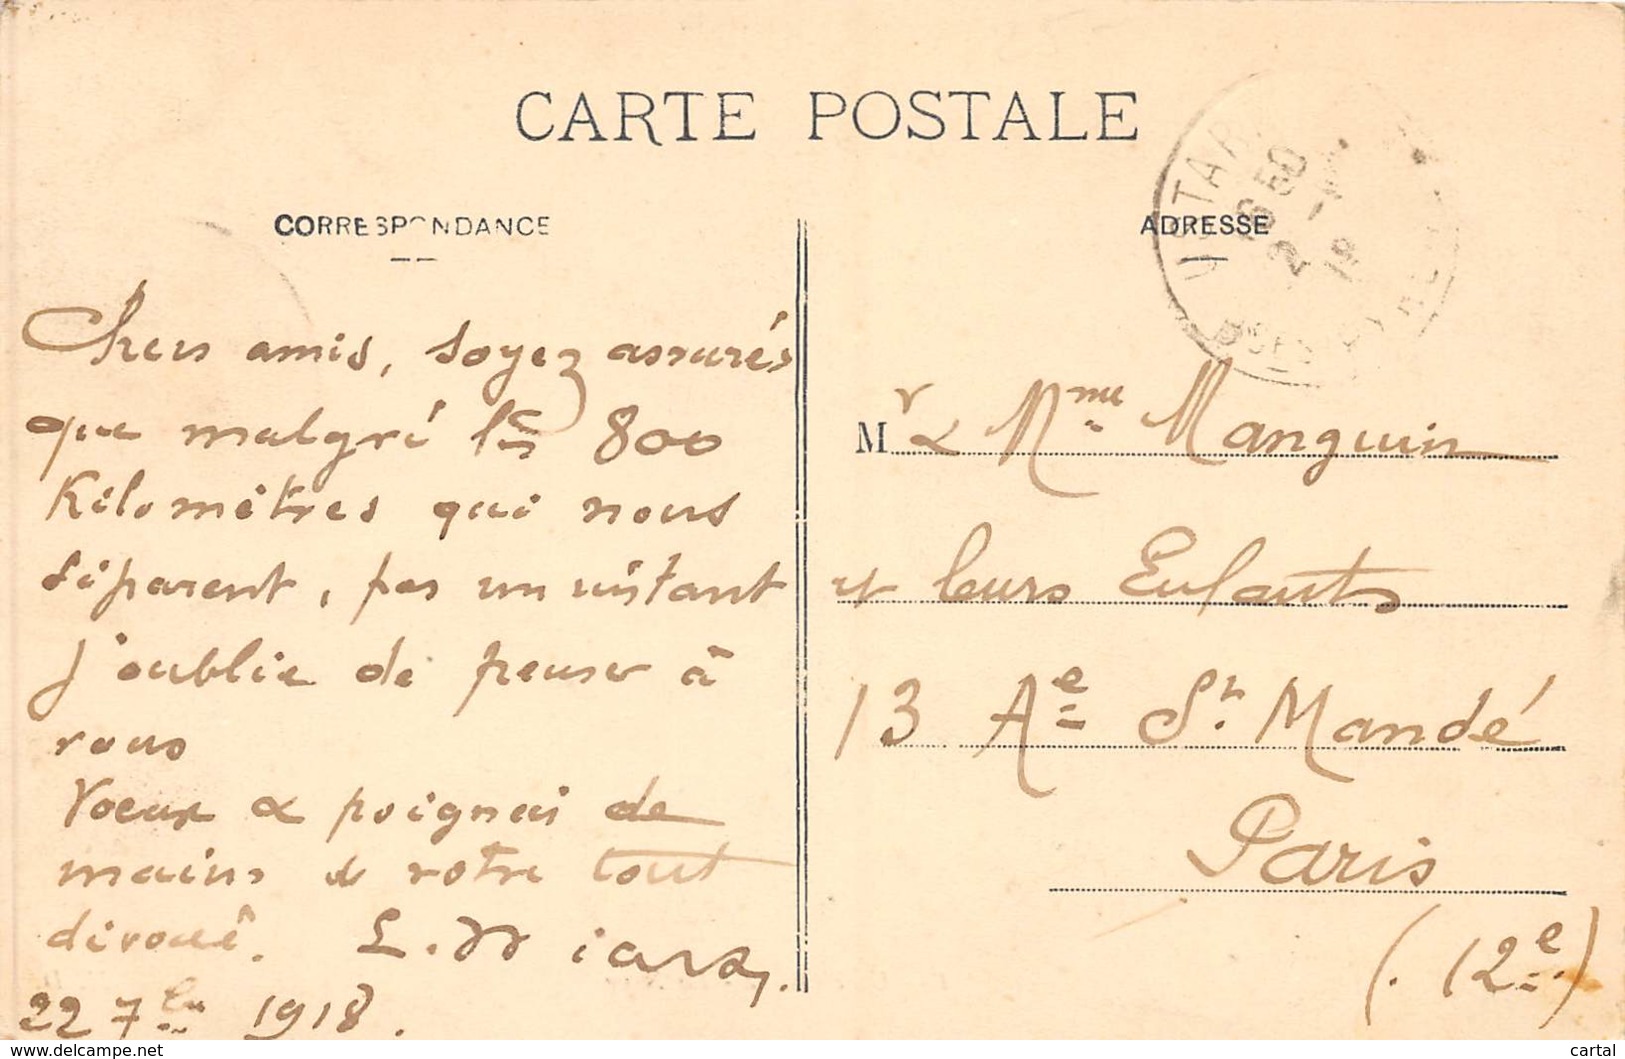 CARTE POSTALE
CORRESPONDANCE
Chers amis, soyez assurés
que malgré les 800
Kilomètres qui nous
séparent, pas un instant
j'oublie de penser à
vous
Voeux & poignées de
mains de votre tout
dévoué. L.
22 7bre 1918.
ADRESSE
USTAR
16 50
2
18
Mr & Mme Manguin
et leurs Enfants
13 Ae St. Mandé
Paris
(12e)
www.delcampe.net
cartal